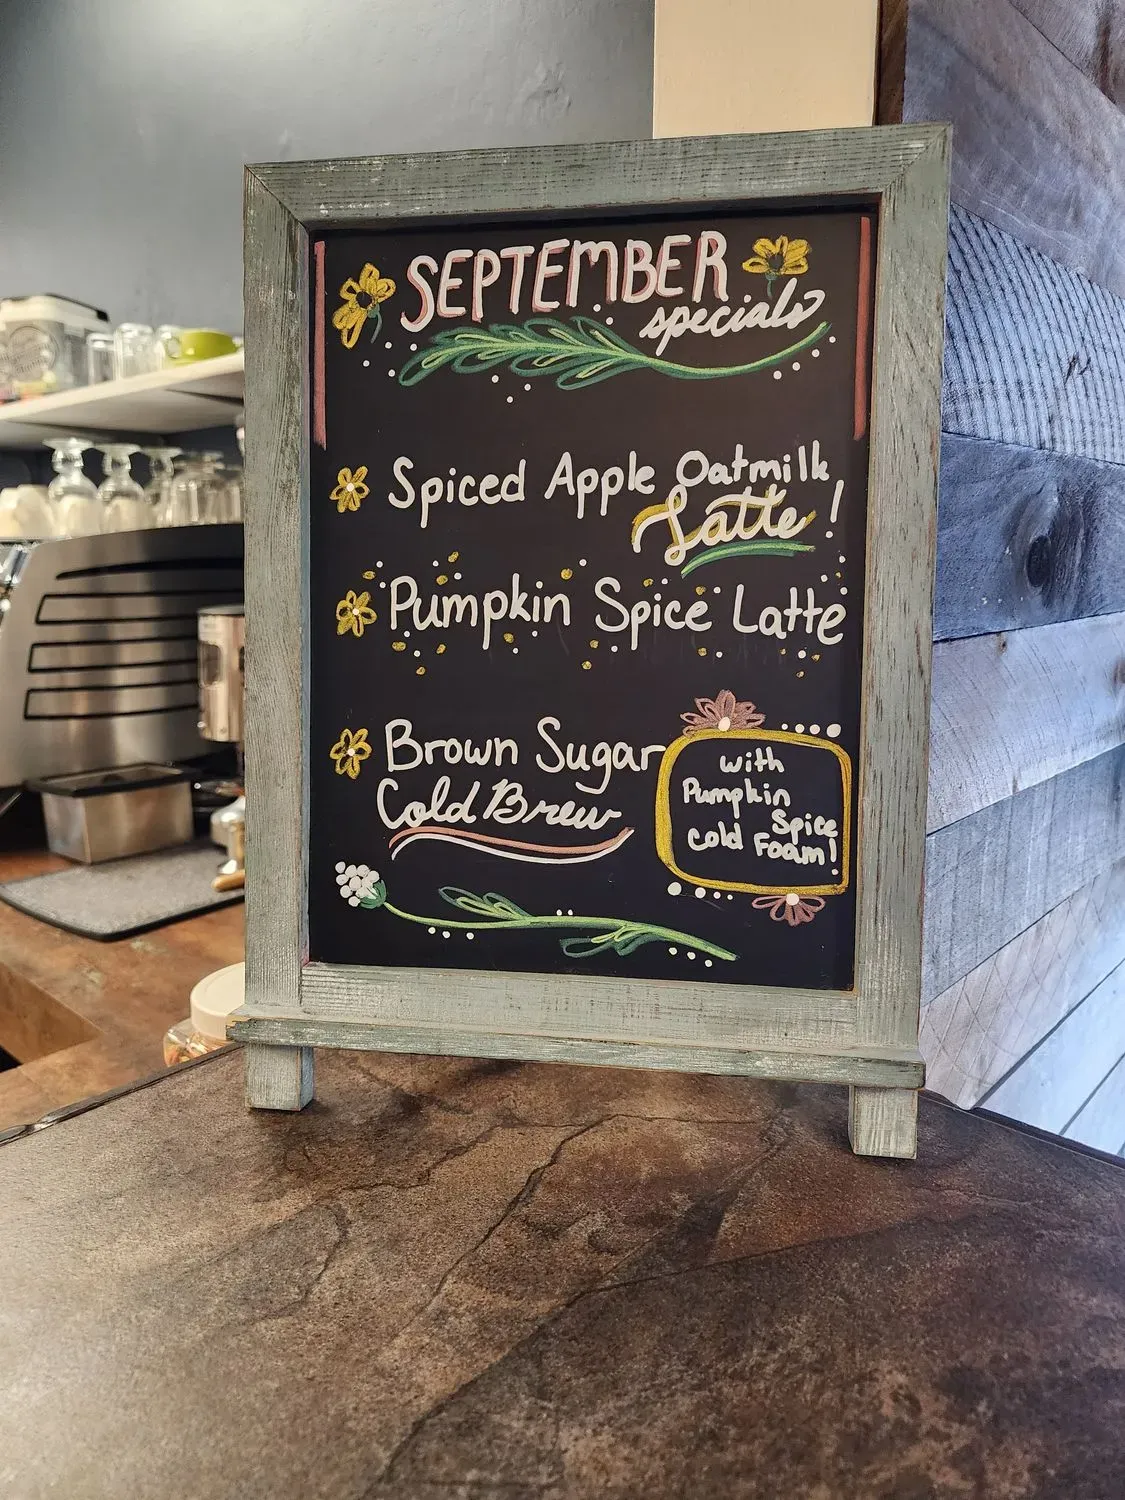 SEPTEMBER
specials
Spiced Apple Oatmilk
Latte!
Pumpkin Spice Latte
Brown Sugar
Cold Brew
with
Pumpkin
Spice
Cold Foam!